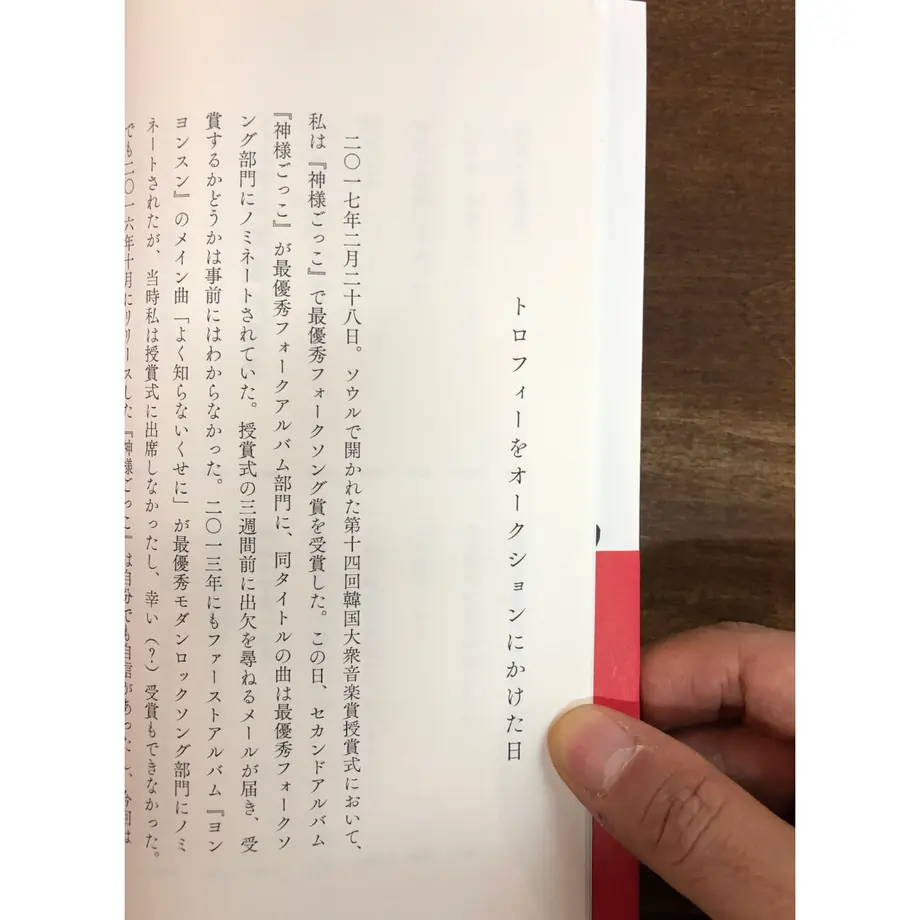 トロフィーをオークションにかけた日
二〇一七年二月二十八日。ソウルで開かれた第十四回韓国大衆音楽賞授賞式において、
私は『神様ごっこ』で最優秀フォークソング賞を受賞した。この日、セカンドアルバム
『神様ごっこ』が最優秀フォークアルバム部門に、同タイトルの曲は最優秀フォークソ
ング部門にノミネートされていた。授賞式の三週間前に出欠を尋ねるメールが届き、受
賞するかどうかは事前にはわからなかった。二〇一三年にもファーストアルバム『ヨン
ヨンスン』のメイン曲「よく知らないくせに」が最優秀モダンロックソング部門にノミ
ネートされたが、当時私は授賞式に出席しなかったし、幸い（？）受賞もできなかった。
でも二〇一六年十月にリリースした『神様ごっこ』は自分でも自信があったし、今回は